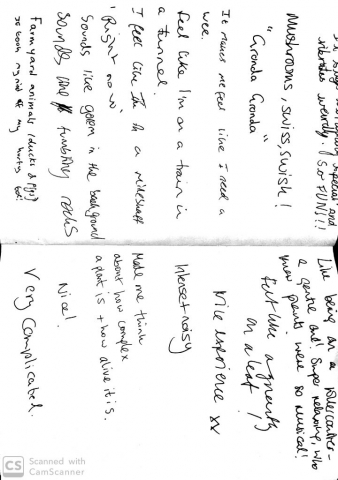 and
vibrates weirdly. (SO FUN!!!
Mushrooms, swiss, swish!
"Gronda Gronda"
It makes me feel like I need a
wee.
feel like I'm on a train in
a tunnel
I feel like I'm in a milkshake
'Right now'
Sounds like golem in the background
Sounds tumbling rocks
Farmyard animals (ducks & pigs)
my
Like being on a rollercoaster -
a gentle one! Super relaxing, who
knew plants were so musical!
felt like a
on a leaf!
Nice experience xx
Intense + noisy
Made me think
about how complex
a plant is + how alive it is.
Nice!
Very Complicated.
CS Scanned with
CamScanner